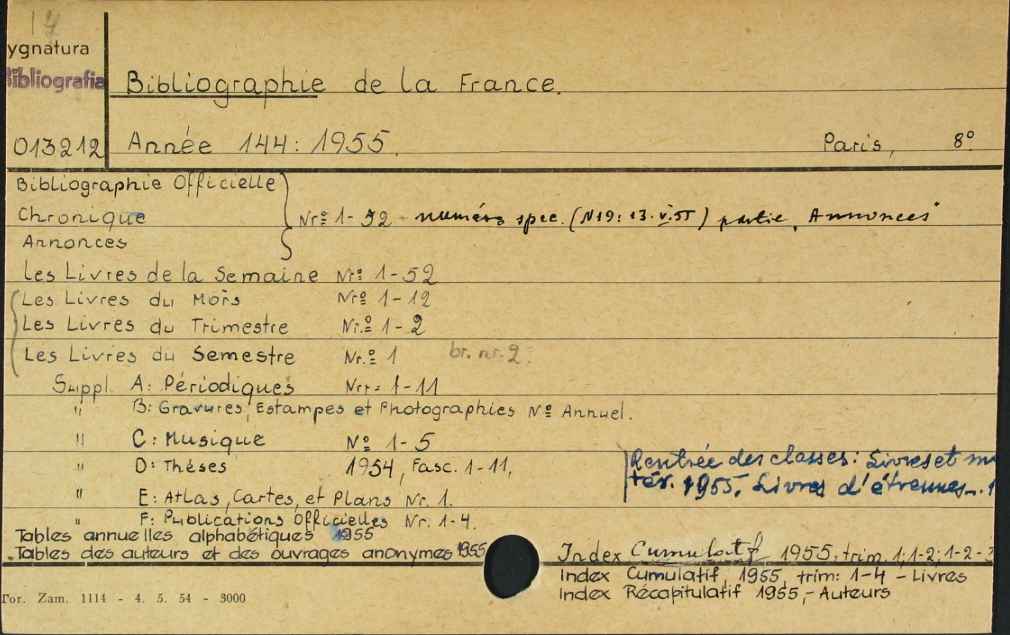 17
ygnatura
Bibliografia
Bibliographie de la France.
013212
Année 144: 1955. Paris, 8º
Bibliographie Officielle
Chronique Nrº 1-52 - numéro spec. (N19: 13.V.55) partie "Annonces"
Annonces
Les Livres de la Semaine Nrº 1-52
Les Livres du Mois Nrº 1-12
Les Livres du Trimestre Nr.º 1-2
Les Livres du Semestre Nr.º 1 br. nr. 2.
Suppl. A: Périodiques Nr 1-11
" B: Gravures, Estampes et Photographies Nº Annuel.
" C: Musique Nº 1-5
" D: Thèses 1954, Fasc. 1-11,
Rentrée des classes: Livres et
1955. Livres d'étrennes
" E: Atlas, Cartes, et Plans Nr. 1.
" F: Publications Officielles Nr. 1-4.
Tables annuelles alphabétiques 1955
Tables des auteurs et des ouvrages anonymes 1955
Index Cumulatif 1955, trim. 1; 1-2; 1-2-3
Index Cumulatif, 1955, trim: 1-4 - Livres
Index Récapitulatif 1955, - Auteurs
Tor. Zam. 1114 - 4. 5. 54 - 3000